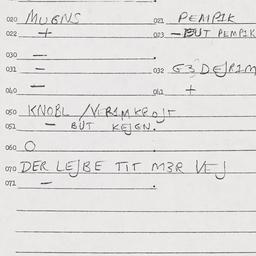 020 MUGNS 021 PEMPIK
022 + 023 — BUT PEMPIK
030 —
031 — 032 G3DEJRIM
040 — 041 +
050 KNOBL /VERIMKROJT
051 — BUT KEJGN.
060 O
070 DER LEJBE TIT M3R VEJ
071 —